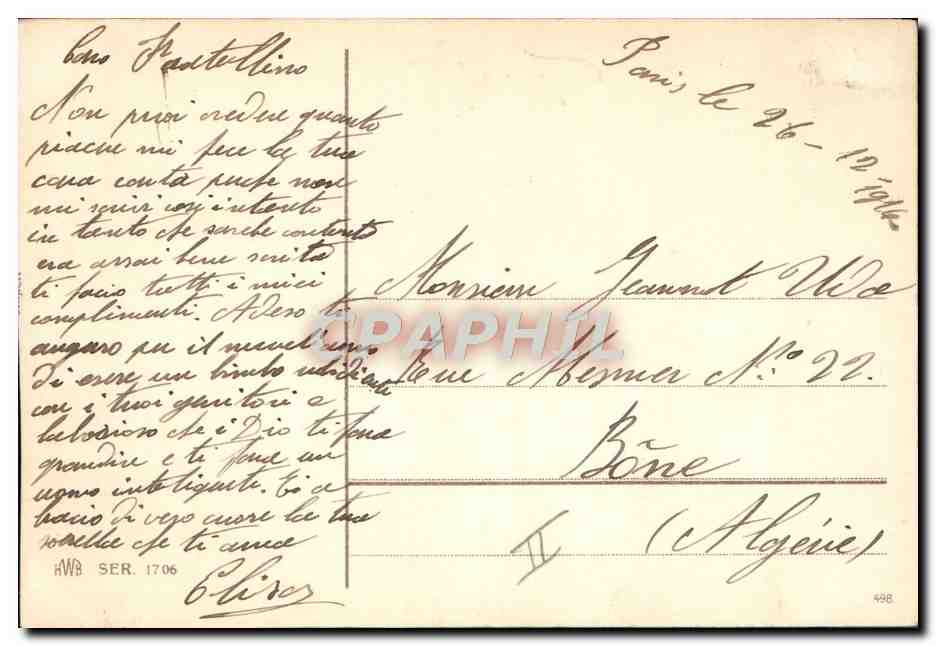 Caro Fratellino
Non puoi credere quanto
piacere mi fece la tua
cara carta perche non
mi scrivi cosi intanto
in tanto che sarebe contento
era assai bene scrita
ti facio tutti i miei
complimenti. Adeso ti
auguro per il novel anno
di esere un bimbo
con i tuoi genitori e
laborioso che i Dio ti fara
grandire e ti fara un
uomo inteligente. Ti
bacio di vero cuore la tua
sorella che ti ama
Elisa
HWB SER. 1706
Paris le 26-12-1914
Monsieur Jeannot Uda
Rue Mesmer No. 22.
Bône
(Algérie)
II
498
CPAPHIL